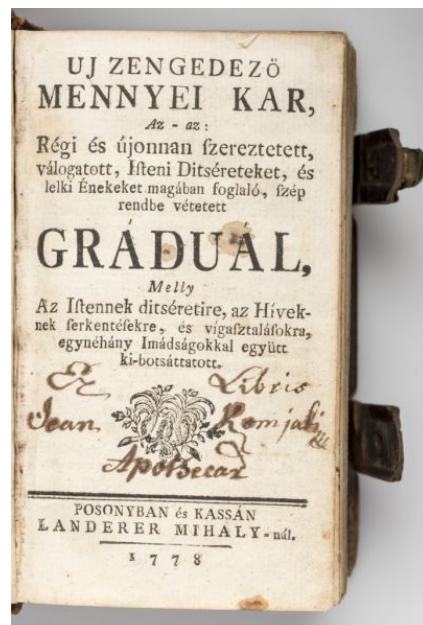 UJ ZENGEDEZÖ
MENNYEI KAR,
Az - az:
Régi és újonnan ſzereztetett,
válogatott, Iſteni Ditséreteket, és
lelki Énekeket magában foglaló, ſzép
rendbe vétetett
GRÁDUÁL,
Melly
Az Iſtennek ditséretire, az Hívek-
nek ſerkentéſekre, és vígaſztaláſokra,
egynéhány Imádságokkal együtt
ki-botsáttatott.
Ex Libris
Jean Komjati
Apothecar
POSONYBAN és KASSÁN
LANDERER MIHALY-nál.
1778